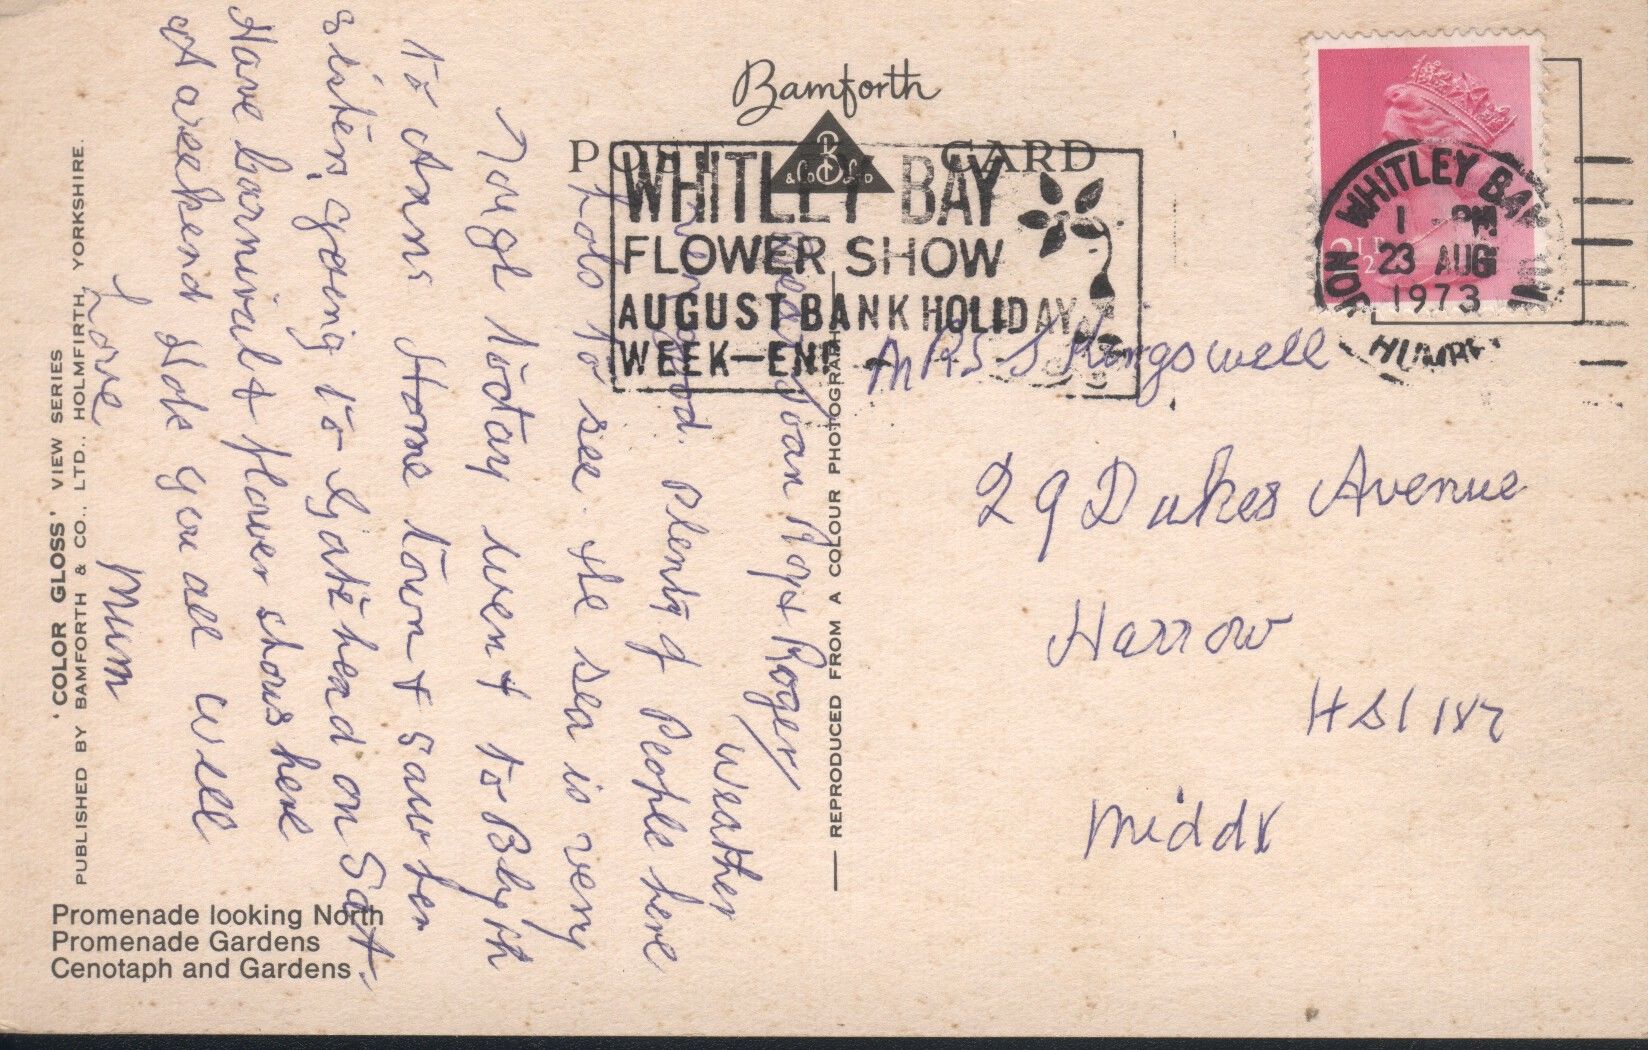 Bamforth
POST CARD
& Co Ltd
WHITLEY BAY
FLOWER SHOW
AUGUST BANK HOLIDAY
WEEK—END
WHITLEY BAY
1 - PM
23 AUG
1973
2½P
Dear Joan Roy & Roger
Weather
good. Plenty of People here
Lots to see. the sea is very
rough today went to Blyth
to Anns Home town & saw her
sister, going to Gateshead on Sat.
Have carnival & flower shows here
at weekend Hope you all well
Love Mum
MRS J Kingswell
29 Dukes Avenue
Harrow
Middx
'COLOR GLOSS' VIEW SERIES
PUBLISHED BY BAMFORTH & CO., LTD., HOLMFIRTH, YORKSHIRE.
— REPRODUCED FROM A COLOUR PHOTOGRAPH —
Promenade looking North
Promenade Gardens
Cenotaph and Gardens